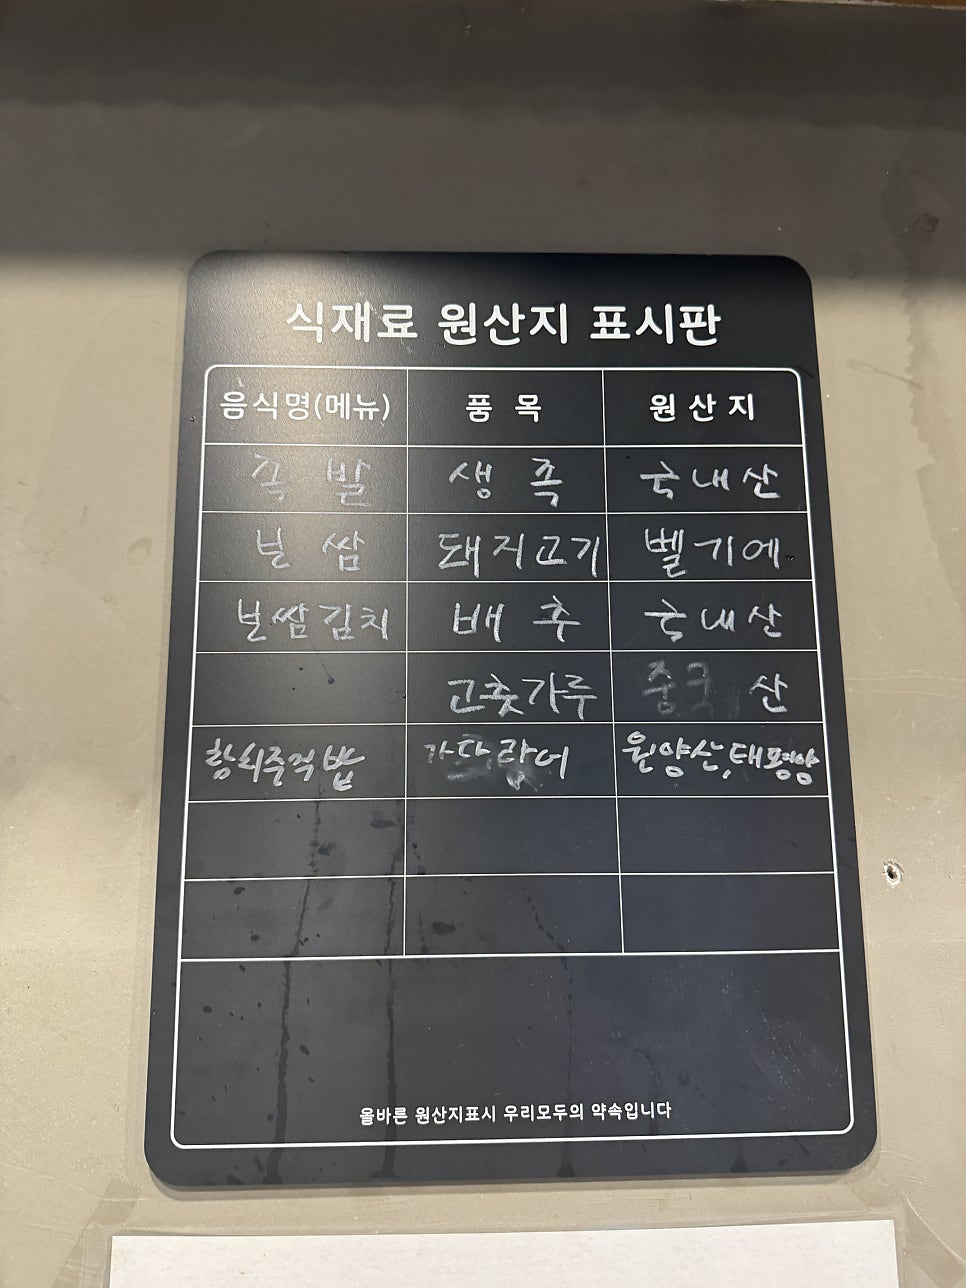 식재료 원산지 표시판
음식명(메뉴) 품 목 원 산 지
족 발 생 족 국내산
보 쌈 돼지고기 벨기에
보쌈김치 배 추 국내산
고춧가루 중국 산
참치주먹밥 가다랑어 원양산,태평양
올바른 원산지표시 우리모두의 약속입니다